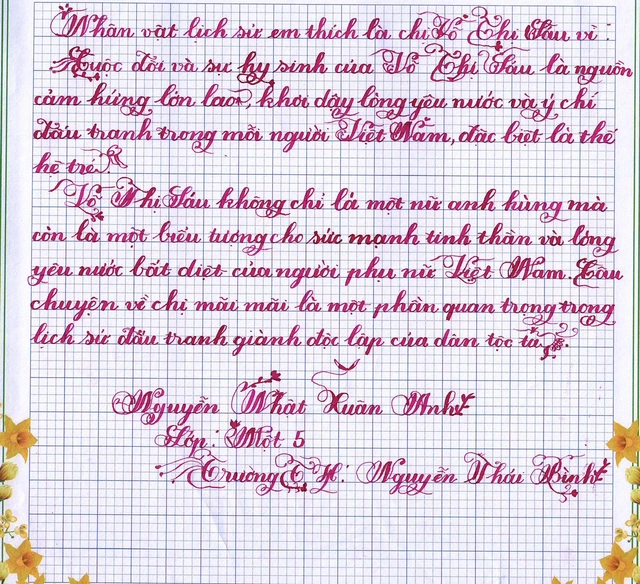 Nhân vật lịch sử em thích là chị Võ Thị Sáu vì:
Cuộc đời và sự hy sinh của Võ Thị Sáu là nguồn
cảm hứng lớn lao, khơi dậy lòng yêu nước và ý chí
đấu tranh trong mỗi người Việt Nam, đặc biệt là thế
hệ trẻ.
Võ Thị Sáu không chỉ là một nữ anh hùng mà
còn là một biểu tượng cho sức mạnh tinh thần và lòng
yêu nước bất diệt của người phụ nữ Việt Nam. Câu
chuyện về chị mãi mãi là một phần quan trọng trong
lịch sử đấu tranh giành độc lập của dân tộc ta.
Nguyễn Nhật Xuân Anh
Lớp: Một 5
Trường TH: Nguyễn Thái Bình